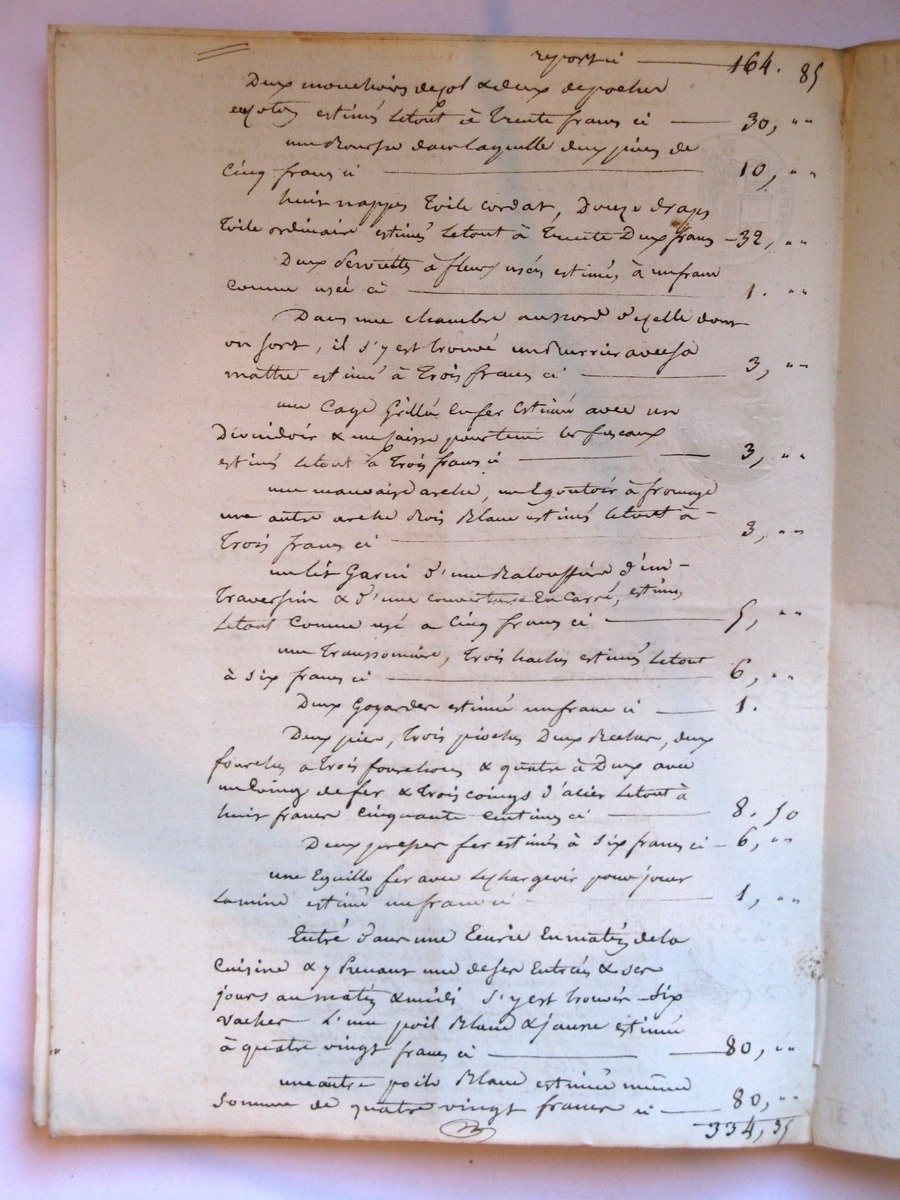 report ci — 164. 85
Deux mouchoirs de col & deux de poches
en coton estimés le tout à Trente francs ci — 30, " "
une Bourse dans laquelle deux pièces de
Cinq francs ci — 10, " "
huit nappes Toile cordat, Douze draps
Toile ordinaire estimés le tout à Trente Deux francs — 32, " "
Deux serviettes à fleurs usées estimés à un franc
comme usée ci — 1. " "
Dans une chambre au nord d'icelle dont
on sort, il s'y est trouvé un Burrier avec sa
matthe estimé à Trois francs ci — 3, " "
une Cage Grillée en fer estimée avec un
Devidoir & une caisse pour tenir les fuseaux
estimés le tout à Trois francs ci — 3, " "
une mauvaise arche, un Egoutoir à fromage
une autre arche Bois Blanc estimés le tout à —
Trois francs ci — 3, " "
un lit Garni d'une Baloussière d'un —
Traversin & d'une couverture En Carré, estimés
le tout comme usé a Cinq francs ci — 5, " "
une Transsonnière, Trois haches estimés le tout
à Six francs ci — 6, " "
Deux Goyardes estimé un franc ci — 1.
Deux pics, Trois pioches Deux deux
fourches a Trois fourchons & quatre à Deux avec
un de fer & Trois coings d'acier le tout à
huit francs Cinquante Centimes ci — 8. 50
Deux fer estimés à Six francs ci — 6, " "
une Eguille fer avec le chargeoir pour jouer
la mine estimé un franc ci — 1, " "
Entré dans une Ecurie En matin de la
Cuisine & y Prenant une de ses Entrées & ses
jours au matin & midi s'y est trouvés Six
vaches L'une poil Blanc & jaune estimée
à quatre vingt francs ci — 80, " "
une autre poils Blanc estimée même
Somme de quatre vingt francs ci — 80, " "
334, 35